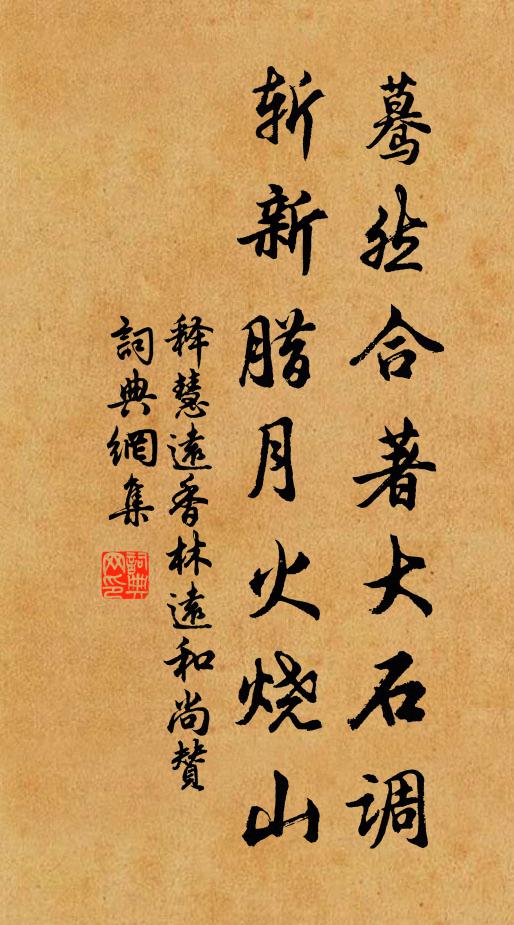 蓦然合著大石调
斩新腊月火烧山
释慧遠香林遠和尚贊
詞典網集
詞典
网印